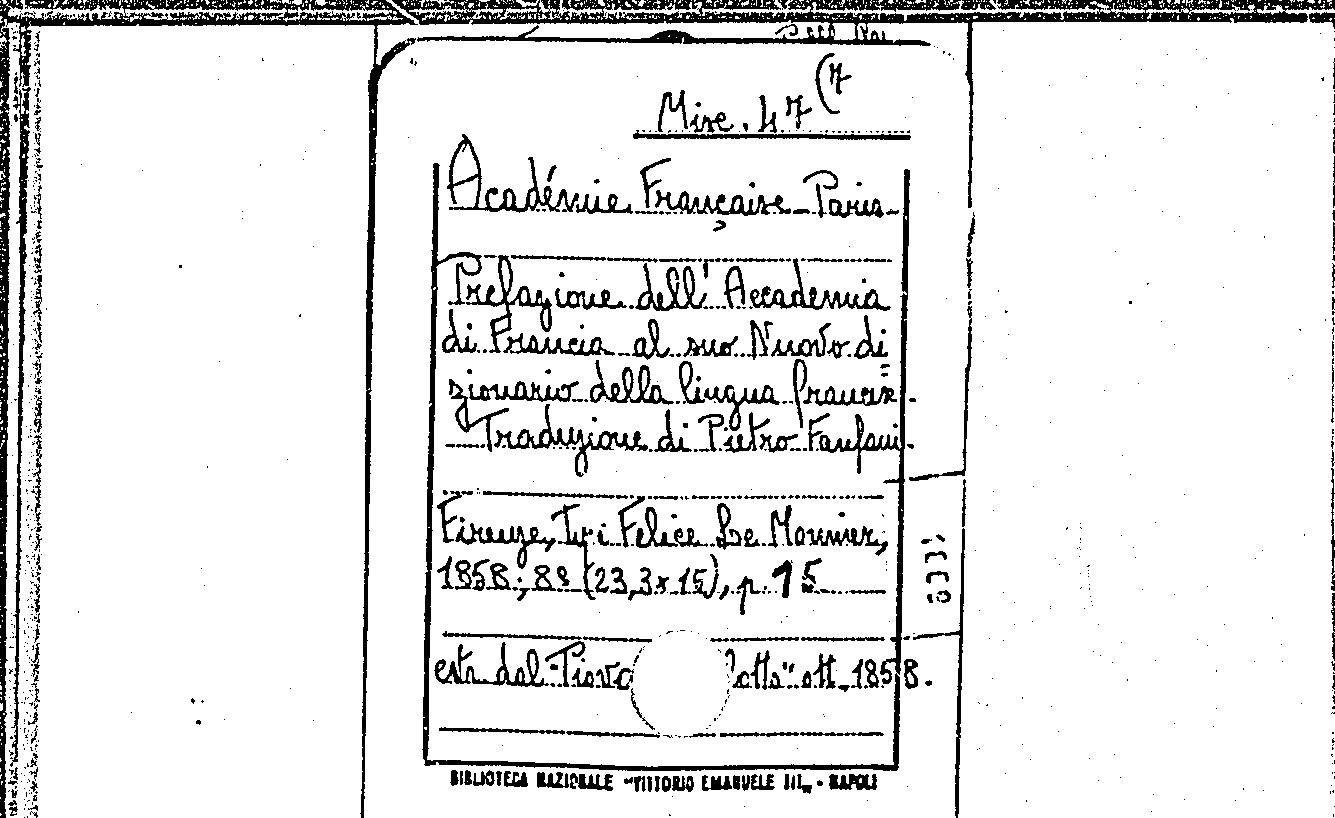 Misc. 47 (7
Académie Française - Paris -
Prefazione dell'Accademia
di Francia al suo Nuovo di
zionario della lingua frances.
Traduzione di Pietro Fanfani.
Firenze, Tipi Felice Le Mounier,
1858; 8º (23,3x15), p. 15
estr. dal "Piova lotto" ott. 1858.
BIBLIOTECA NAZIONALE "VITTORIO EMANUELE III" - NAPOLI